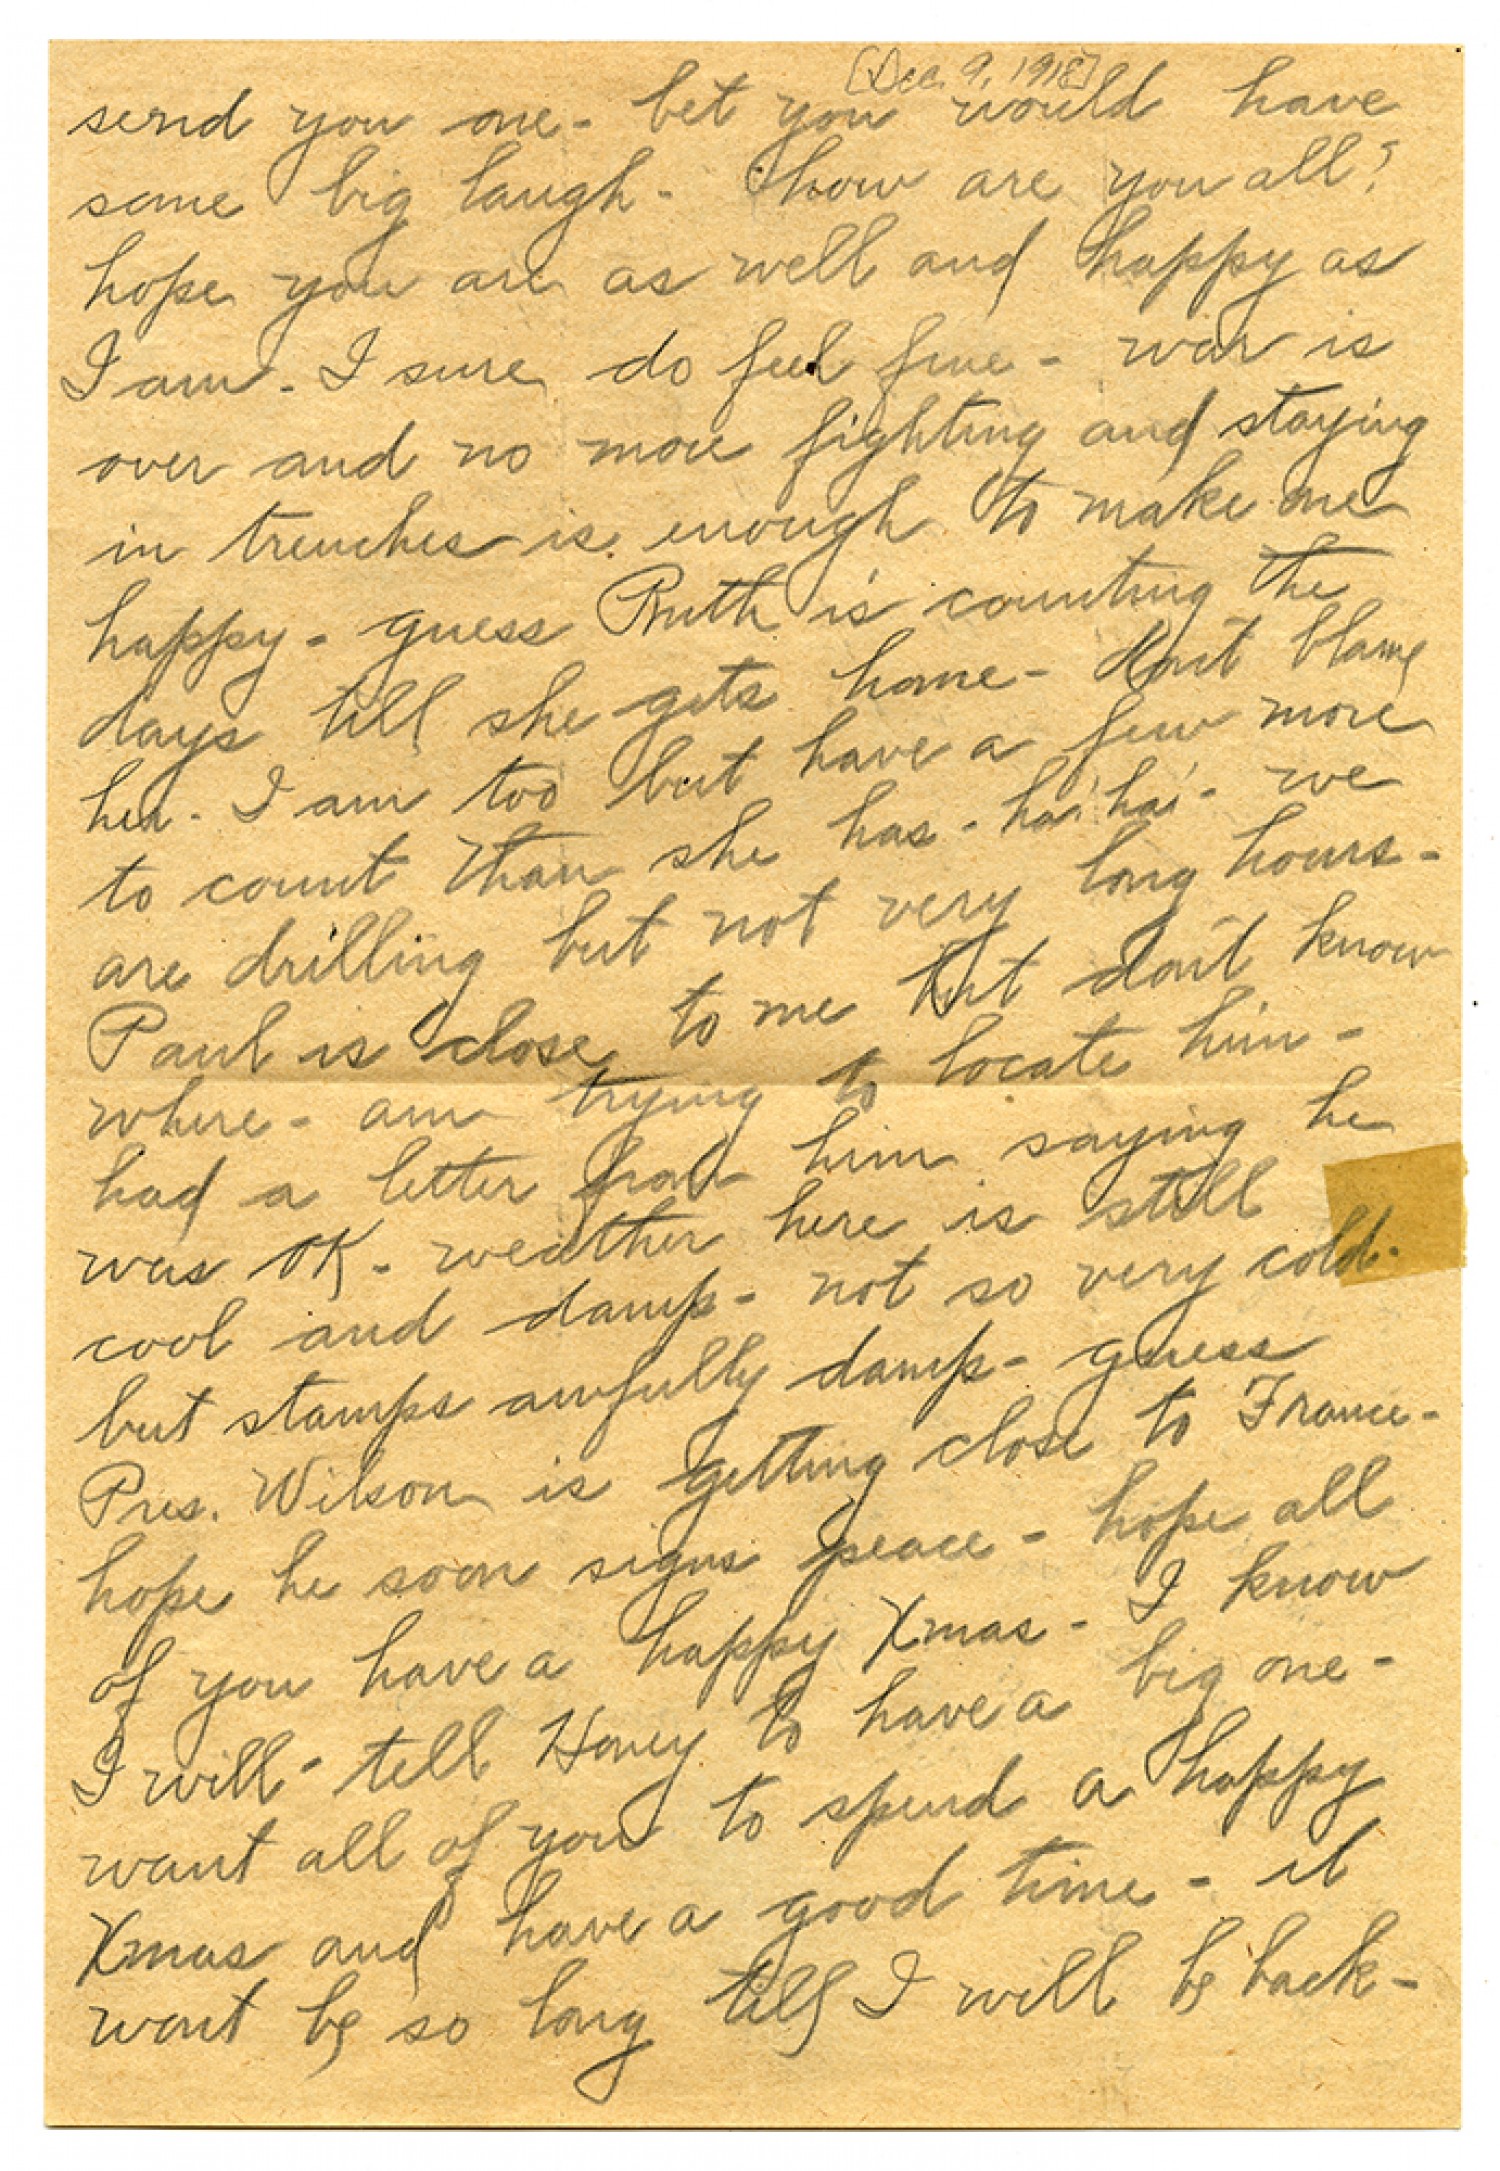 [Dec. 9, 1918]
send you one - bet you would have
some big laugh - how are you all?
hope you are as well and happy as
I am - I sure do feel fine - war is
over and no more fighting and staying
in trenches is enough to make me
happy - guess Ruth is counting the
days till she gets home - don't blame
her - I am too but have a few more
to count than she has - ha! ha! - we
are drilling but not very long hours -
Paul is close to me but don't know
where - am trying to locate him -
had a letter from him saying he
was OK - weather here is still
cool and damp - not so very cold -
but stamps awfully damp - guess
Pres. Wilson is getting close to France -
hope he soon signs peace - hope all
of you have a happy Xmas - I know
I will - tell Honey to have a big one -
want all of you to spend a happy
Xmas and have a good time - it
wont be so long till I will be back -